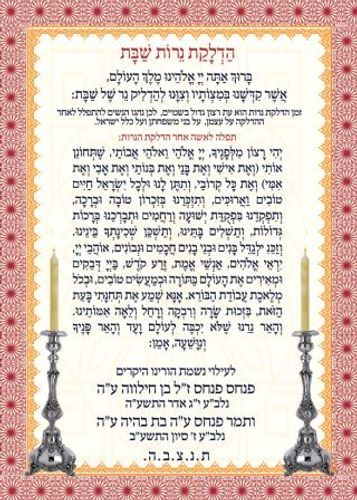 הַדְלָקַת נֵרוֹת שַׁבָּת
בָּרוּךְ אַתָּה יְיָ אֱלֹהֵינוּ מֶלֶךְ הָעוֹלָם,
אֲשֶׁר קִדְּשָׁנוּ בְּמִצְוֹתָיו וְצִוָּנוּ לְהַדְלִיק נֵר שֶׁל שַׁבָּת:
זמן הדלקת נרות הוא עת רצון גדול בשמיים, לכן נהגו הנשים להתפלל לאחר
ההדלקה על עצמן, על בני משפחתן ועל כלל ישראל.
תפלה לאשה אחר הדלקת הנרות:
יְהִי רָצוֹן מִלְּפָנֶיךָ, יְיָ אֱלֹהַי וֵאלֹהֵי אֲבוֹתַי, שֶׁתְּחוֹנֵן
אוֹתִי (וְאֶת אִישִׁי וְאֶת בָּנַי וְאֶת בְּנוֹתַי וְאֶת אָבִי וְאֶת
אִמִּי) וְאֶת כָּל קְרוֹבַי, וְתִתֵּן לָנוּ וּלְכָל יִשְׂרָאֵל חַיִּים
טוֹבִים וַאֲרוּכִים, וְתִזְכְּרֵנוּ בְּזִכְרוֹן טוֹבָה וּבְרָכָה,
וְתִפְקְדֵנוּ בִּפְקֻדַּת יְשׁוּעָה וְרַחֲמִים וּתְבָרְכֵנוּ בְּרָכוֹת
גְּדוֹלוֹת, וְתַשְׁלִים בָּתֵּינוּ, וְתַשְׁכֵּן שְׁכִינָתְךָ בֵּינֵינוּ.
וְזַכֵּנִי לְגַדֵּל בָּנִים וּבְנֵי בָנִים חֲכָמִים וּנְבוֹנִים, אוֹהֲבֵי יְיָ,
יִרְאֵי אֱלֹהִים, אַנְשֵׁי אֱמֶת, זֶרַע קֹדֶשׁ, בַּייָ דְּבֵקִים
וּמְאִירִים אֶת הָעוֹלָם בְּתוֹרָה וּבְמַעֲשִׂים טוֹבִים, וּבְכָל
מְלֶאכֶת עֲבוֹדַת הַבּוֹרֵא. אָנָּא שְׁמַע אֶת תְּחִנָּתִי בָּעֵת
הַזֹּאת, בִּזְכוּת שָׂרָה וְרִבְקָה וְרָחֵל וְלֵאָה אִמּוֹתֵינוּ.
וְהָאֵר נֵרֵנוּ שֶׁלֹּא יִכְבֶּה לְעוֹלָם וָעֶד וְהָאֵר פָּנֶיךָ
וְנִוָּשֵׁעָה, אָמֵן:
לעילוי נשמת הורינו היקרים
פנחס פנחס ז"ל בן חילווה ע"ה
נלב"ע י"ג אדר התשע"ה
ותמר פנחס ע"ה בת בהיה ע"ה
נלב"ע ז' סיון התשע"ב
ת.נ.צ.ב.ה.